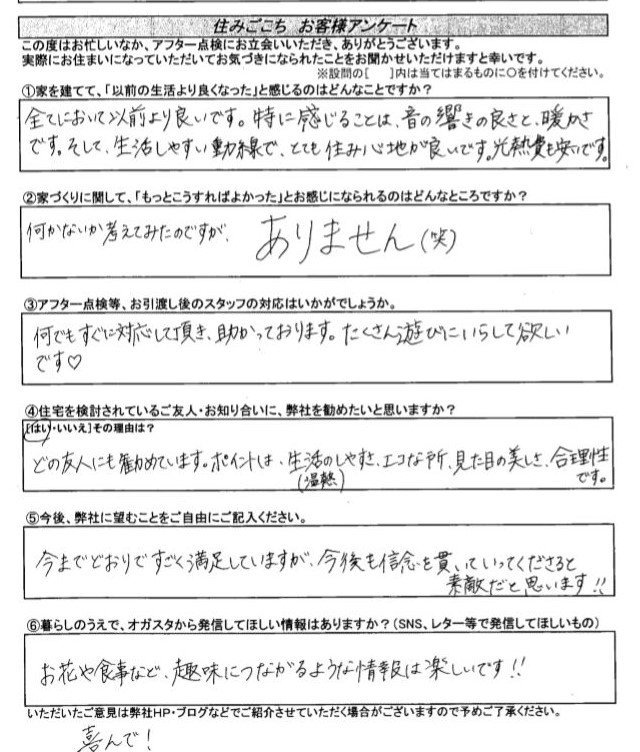 住みごこち お客様アンケート
この度はお忙しいなか、アフター点検にお立会いいただき、ありがとうございます。
実際にお住まいになっていただいてお気づきになられたことをお聞かせいただけますと幸いです。
※設問の[　]内は当てはまるものに○を付けてください。
①家を建てて、「以前の生活より良くなった」と感じるのはどんなことですか？
全てにおいて以前より良いです。特に感じることは、音の響きの良さと、暖かさ
です。そして、生活しやすい動線で、とても住み心地が良いです。光熱費も安いです。
②家づくりに関して、「もっとこうすればよかった」とお感じになられるのはどんなところですか？
何かないか考えてみたのですが、ありません(笑)
③アフター点検等、お引渡し後のスタッフの対応はいかがでしょうか。
何でもすぐに対応して頂き、助かっております。たくさん遊びにいらして欲しい
です♡
④住宅を検討されているご友人・お知り合いに、弊社を勧めたいと思いますか？
[はい・いいえ]その理由は？
どの友人にも勧めています。ポイントは、生活のしやすさ、エコな所、見た目の美しさ、合理性
(温熱)
です。
⑤今後、弊社に望むことをご自由にご記入ください。
今までどおりですごく満足していますが、今後も信念を貫いていってくださると
素敵だと思います!!
⑥暮らしのうえで、オガスタから発信してほしい情報はありますか？(SNS、レター等で発信してほしいもの)
お花や食事など、趣味につながるような情報は楽しいです!!
いただいたご意見は弊社HP・ブログなどでご紹介させていただく場合がございますので予めご了承ください。
喜んで!